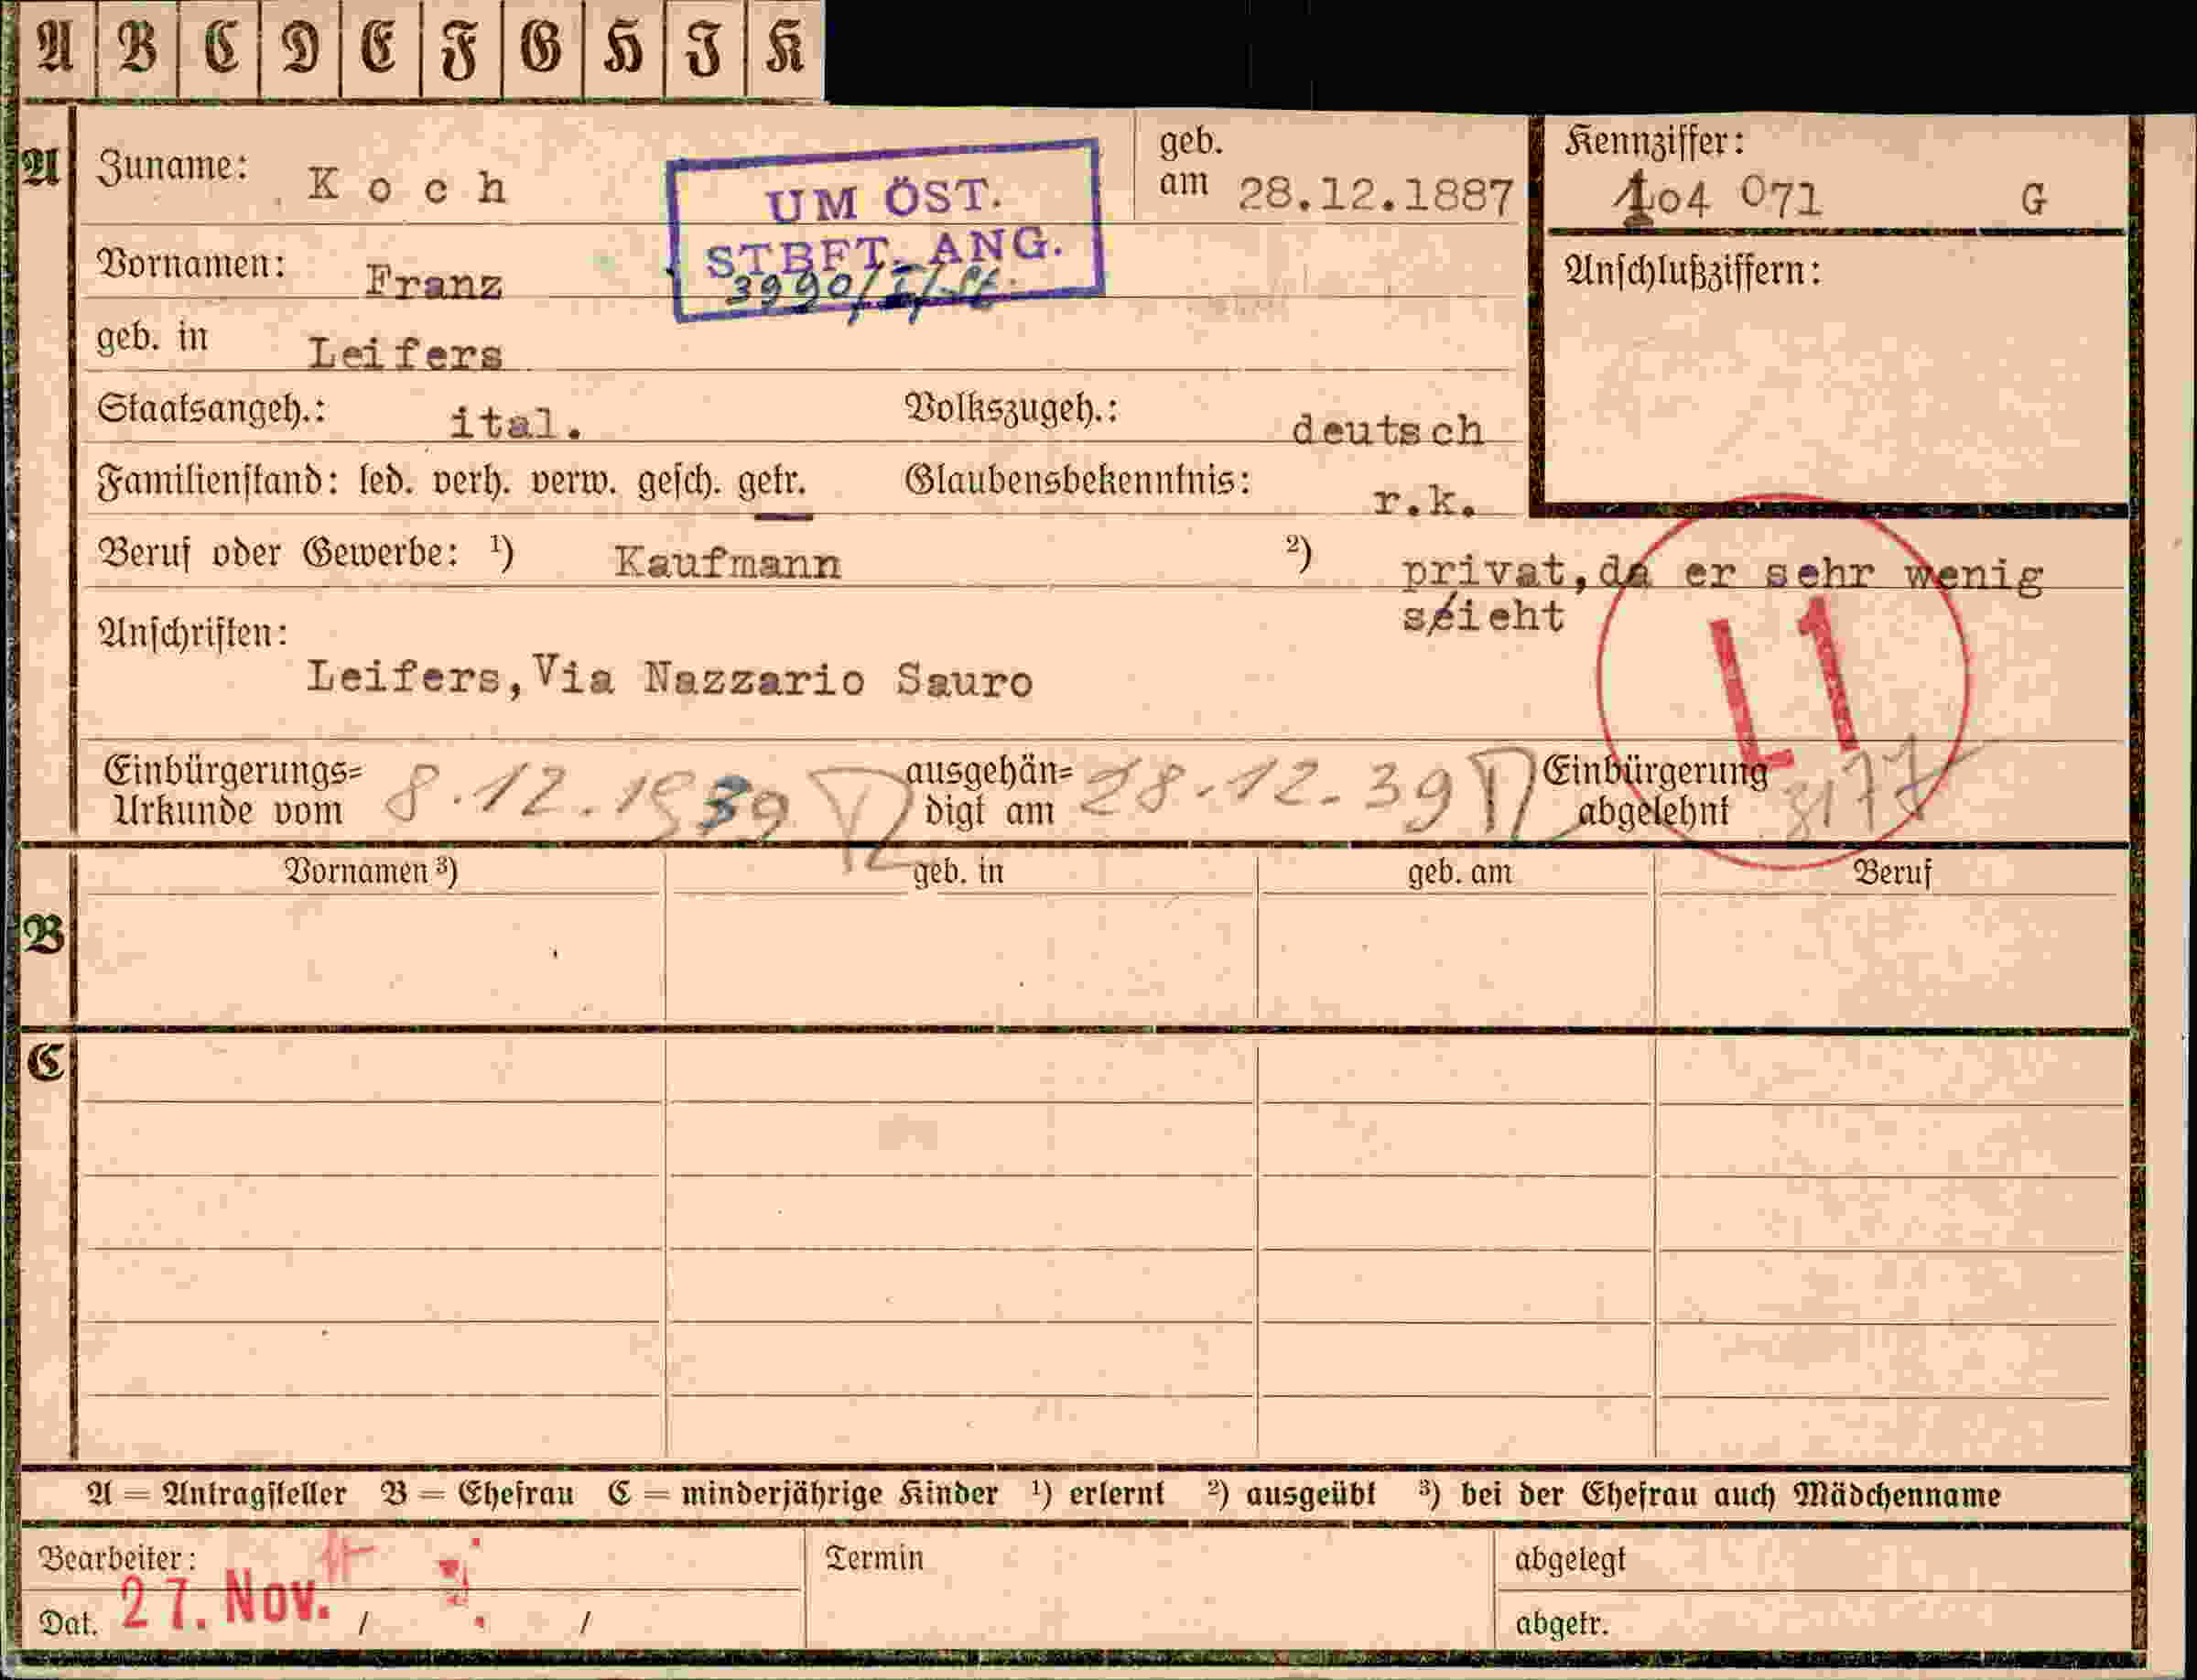 A B C D E F G H J K
A
Zuname: Koch
geb. am 28.12.1887
Kennziffer: 104 071 G
UM ÖST.
STBFT. ANG.
3990/
Vornamen: Franz
Anschlußziffern:
geb. in Leifers
Staatsangeh.: ital. Volkszugeh.: deutsch
Familienstand: led. verh. verw. gesch. getr. Glaubensbekenntnis: r.k.
Beruf oder Gewerbe: ¹) Kaufmann ²) privat, da er sehr wenig
sieht
Anschriften:
Leifers, Via Nazzario Sauro
L1
Einbürgerungs=
Urkunde vom 8.12.1939
ausgehän=
digt am 28.12.39
Einbürgerung
abgelehnt 3177
Vornamen ³) geb. in geb. am Beruf
B
C
A = Antragsteller B = Ehefrau C = minderjährige Kinder ¹) erlernt ²) ausgeübt ³) bei der Ehefrau auch Mädchenname
Bearbeiter: Termin abgelegt
Dat. 27. Nov. / / abgetr.